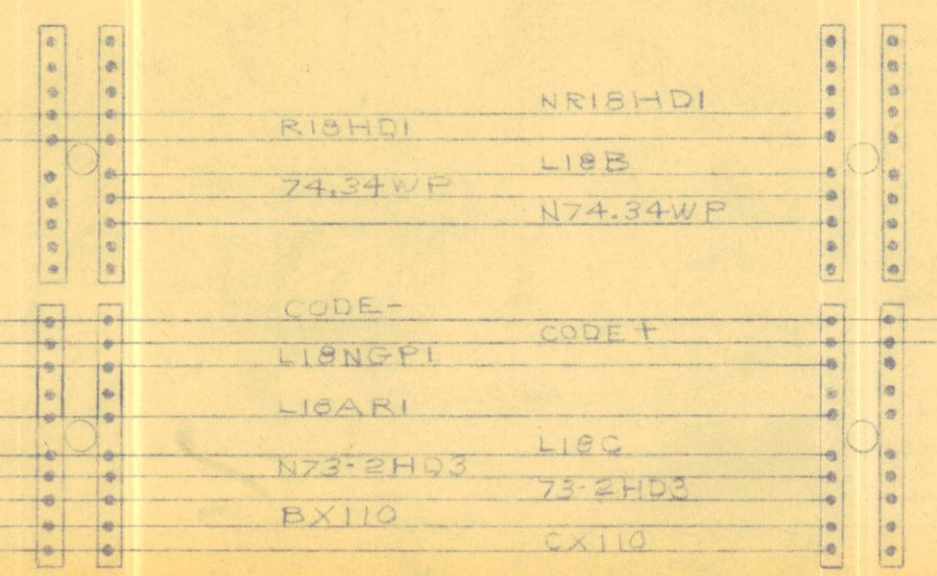 NR18HD1
R18HD1
L18B
74.34WP
N74.34WP
CODE-
CODE+
L18NGP1
L18AR1
L18C
N73-2HD3
73-2HD3
BX110
CX110